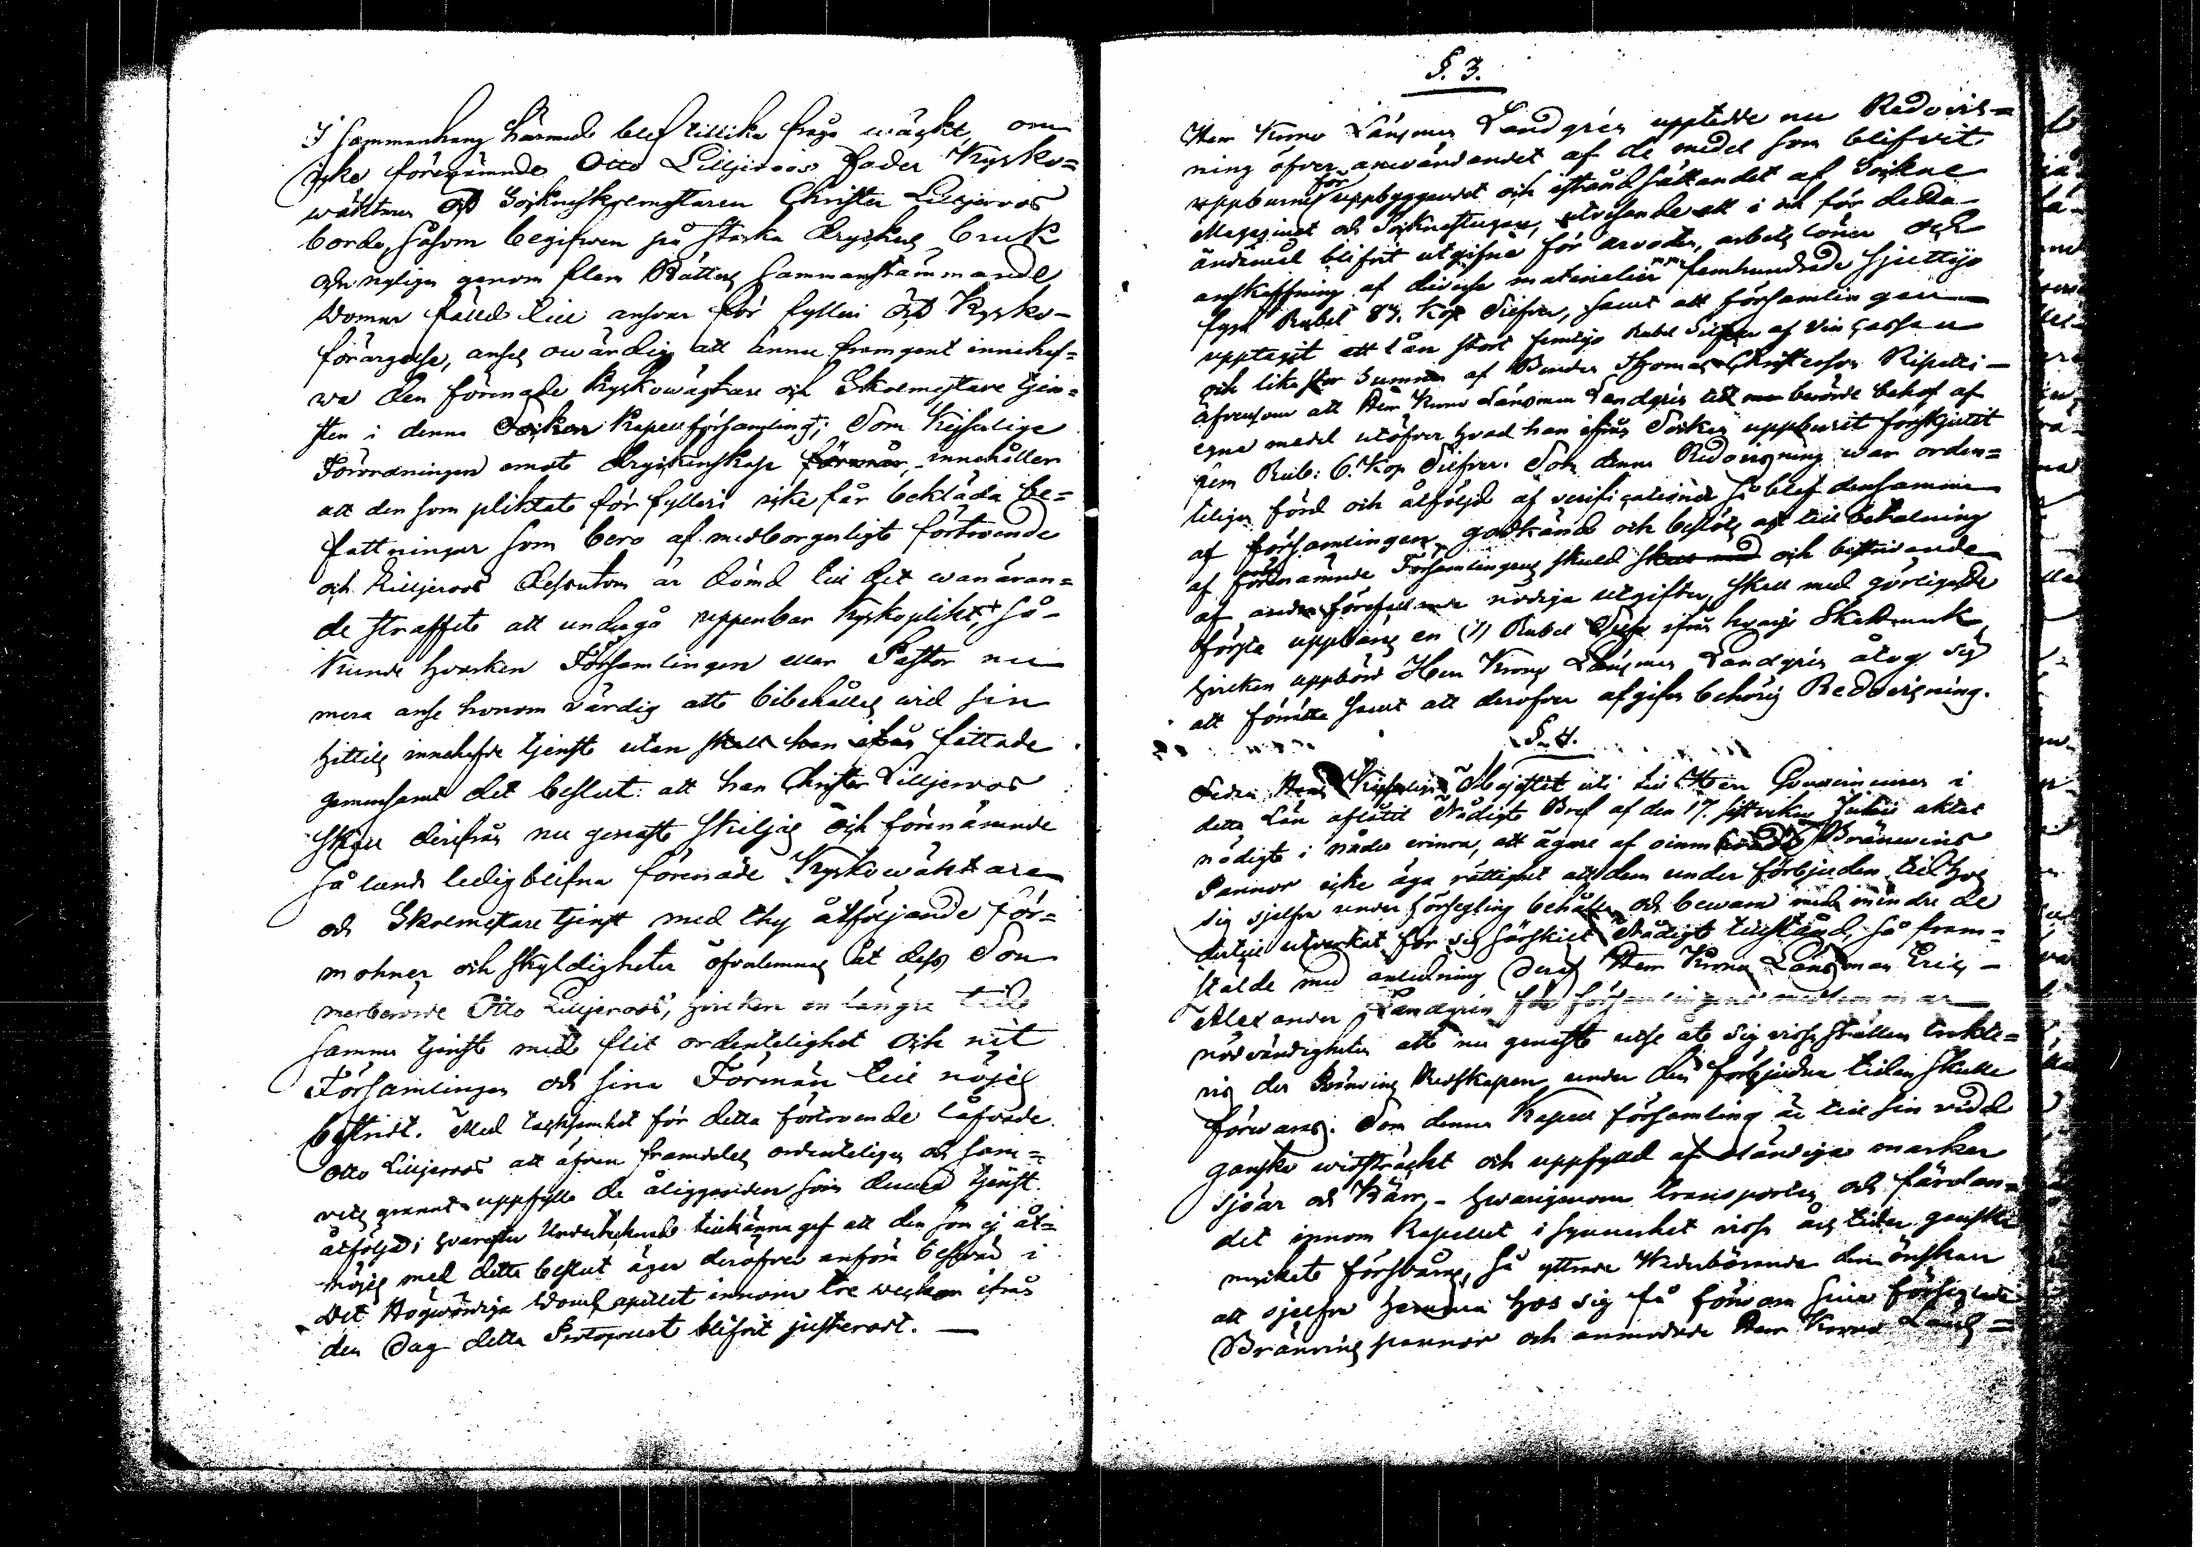 I sammanhang härmed blef tillika fråga wäckt, om
icke förenämnde Otto Lilljeroos fader Kyrko=
wäktaren och Sockneskolemästaren Christer Lilljeroos
borde, såsom begifwen på starka dryckers bruk
och nyligen genom flera Rätters sammanstämmande
Domar fälld till answar för fylleri och Kyrko-
förargelse, anses owärdig att ännu framgent innehaf=
wa den förenade Kyrkowäktare och Skolemästare tjen=
sten i denna Kapellförsamling; Som Kejserliga
Förordningen emot dryckenskap innehåller
att den som pliktat för fylleri icke får bekläda be=
fattningar som bero af medborgerligt förtroende
och Lilljeroos dessutom är dömd till det wanäran=
de straffet att undergå uppenbar kyrkoplikt, så-
kunde hwarken Församlingen eller Pastor nu
mera anse honom värdig att bibehållas wid sin
hittills innehafde tjenst utan fattade
gemensamt det beslut: att han Christer Lilljeroos
skall derifrån nu genast skiljas och förenämnde
så lunda ledigblefna förenade Kyrkowäktare
och Skolemästare tjenst med thy åtföljande för=
moner och skyldigheter öfwerlemnas åt dess Son
merberörde Otto Lilljeroos, hwilken en längre tid
samma tjenst med flit ordentelighet och nit
Församlingen och sina Förmän till nöjes
bestridt. Med tacksamhet för detta förtroende låfvade
Otto Lilljeroos att äfven framdeles ordenteligen och sam=
vets grannt uppfylla de åligganden som denna tjenst
åtfölja; hvarefter tillkännagaf att den som ej åt=
nöjes med detta beslut äger deröfver anföra beswär i
Det Högwördiga Domkapitlet innom tre weckor ifrån
den dag detta Protocoll blifvit justeradt. —
§. 3.
Herr Krono Länsman Landgrén uppteedde nu Redovis=
ning öfver användandet af de medel som blifvit
uppburne för uppbyggandet och iståndsättandet af Sockne
Magazinet och Socknestugan, utvisande att i och för detta
ändamål blifvit utgifne för arvoden, arbets löner och
anskaffning af diverse materialier m.m. femhundrade sjuttijo
fyra Rubel 84. Kop Silfver, samt att församlingen
upptagit ett lån stort femtijo Rubel Silfver af Vin Cassan
och lika stor Summa af Bonden Thomas Christersson
äfvensom att Herr Krono Länsman Landgrén till berörde behof af
egne medel utöfver hvad han ifrån Socken uppburit förskjutit
fem Rub: 6. Kop Silfver. Som denna Redovisning war orden=
teligen förd och åtföljd af verificationer så blef densamma
af församlingen godkänd och beslöts att till betalning
af förenämnde Församlingens skuld och bestridande
af andra förefallande nödiga utgifter, skall med görligaste
första uppbäras en (1) Rubel Silfver ifrån hvarje
hvilken uppbörd Herr Krono Länsman Landgrén åtog sig
att förrätta samt att deröfver afgifva behörig Redovisning.
§. 4.
Sedan Hans Kejserliga Majestät uti till Herr Gouverneuren i
detta Län aflåtit Nådigt Bref af den 17. sistvikne Julii aktat
nödigt i nåder erinra, att ägare af Bränwins
Pannor icke äga rättighet att dem under förbjuden tid hos
sig sjelfva under försegling behålla och bewara med mindre de
dertill utverkat för sig särskilt Nådigt tillstånd, så fram=
stälde med anledning deraf Herr Krono Länsman Eric
Alexander Landgrén för församlingens medlemmar
nödvändigheten att nu genast utse åt sig vissa ställen
der Bränvins Redskapen under den förbjudna tiden skulle
förwaras. Som denna Kapell församling är till sin vidd
ganska widsträckt och uppfylld af marker
sjöar och Kärr, - hwarigenom transporten och färdan=
det innom Kapellet i synnerhet vissa års tider ganska
mycket försvåras, så yttrade Wederbörande den önskan
att sjelfva hemma hos sig få förwara sina förseglade
Bränvins pannor och anmodade Herr Krono Läns=